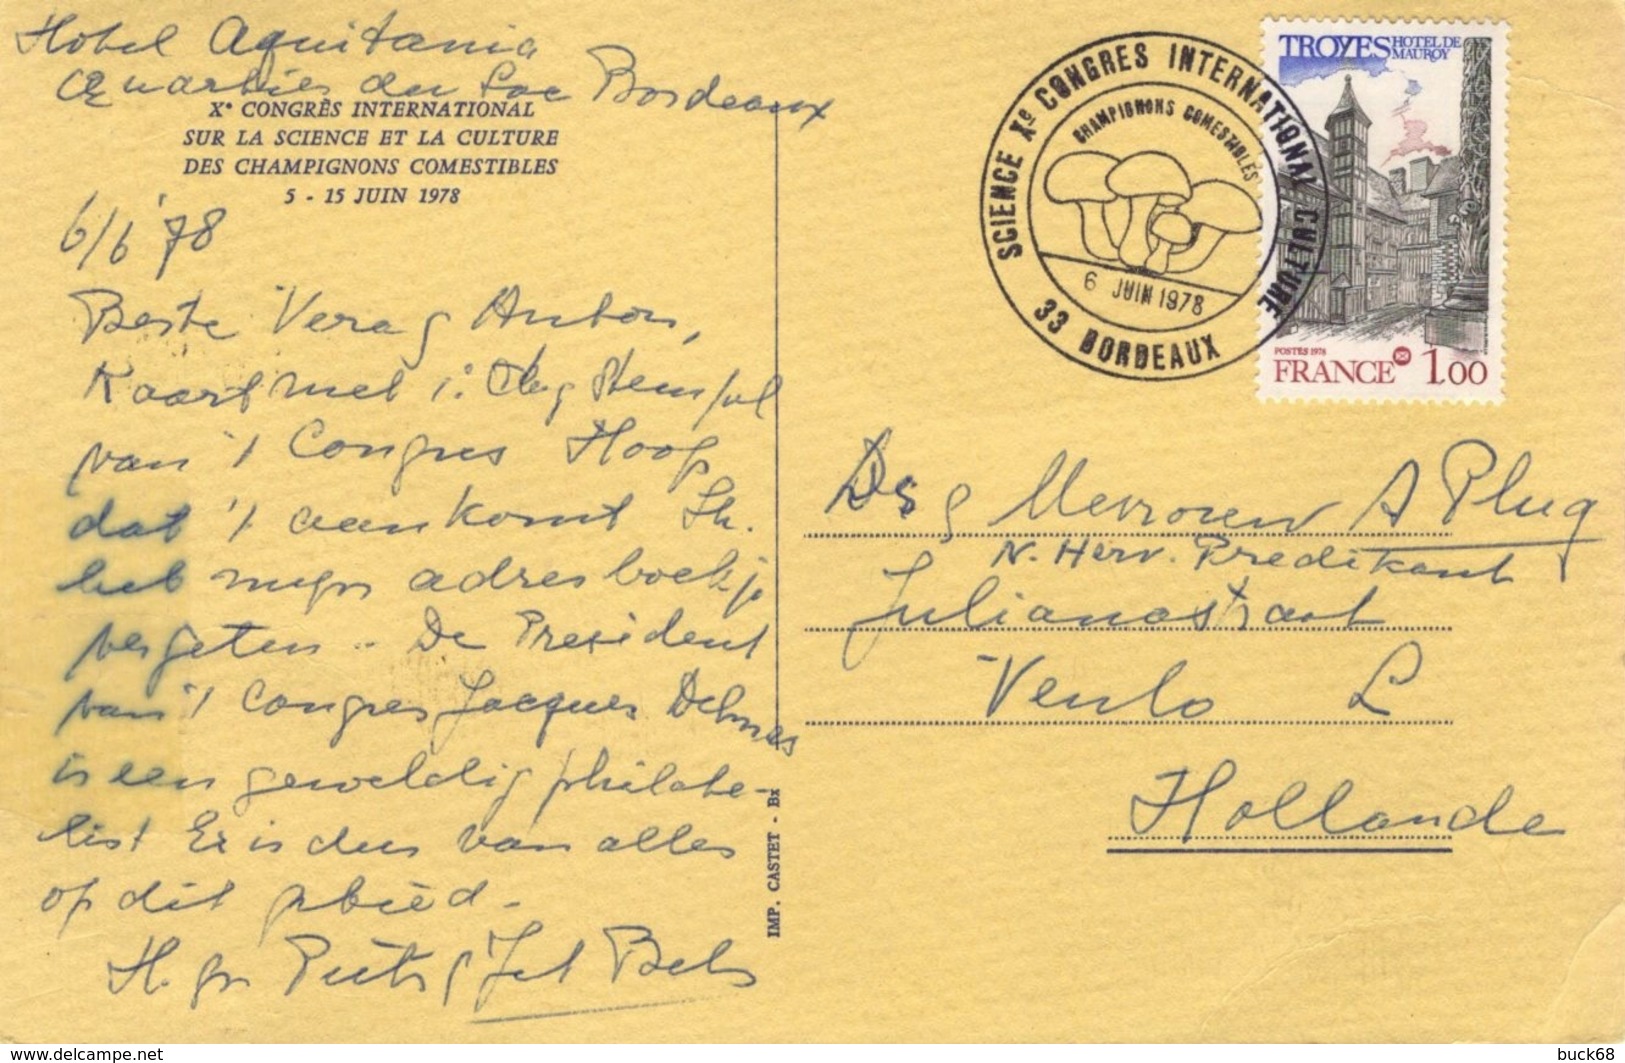 Hotel Aquitania
Quartier du Lac Bordeaux
Xe CONGRÈS INTERNATIONAL
SUR LA SCIENCE ET LA CULTURE
DES CHAMPIGNONS COMESTIBLES
5 - 15 JUIN 1978
6/6 '78
Beste Vera Anton,
Kaart met stempel
van 't Congres Hoop
dat 't aankomt
heb adresboekje
vergeten .. De President
van 't Congres Jacques Delmas
is een geweldig philate-
list Er is dus van alles
op dit gebied.
H. gr. Piet Jet Bels
IMP. CASTET - Bx
SCIENCE Xe CONGRES INTERNATIONAL CULTURE
CHAMPIGNONS COMESTIBLES
6 JUIN 1978
33 BORDEAUX
TROYES HOTEL DE
MAUROY
POSTES 1978
FRANCE 1.00
Ds Mevrouw A Plug
N. Herv. Predikant
Julianastraat
Venlo L
Hollande
www.delcampe.net
buck68